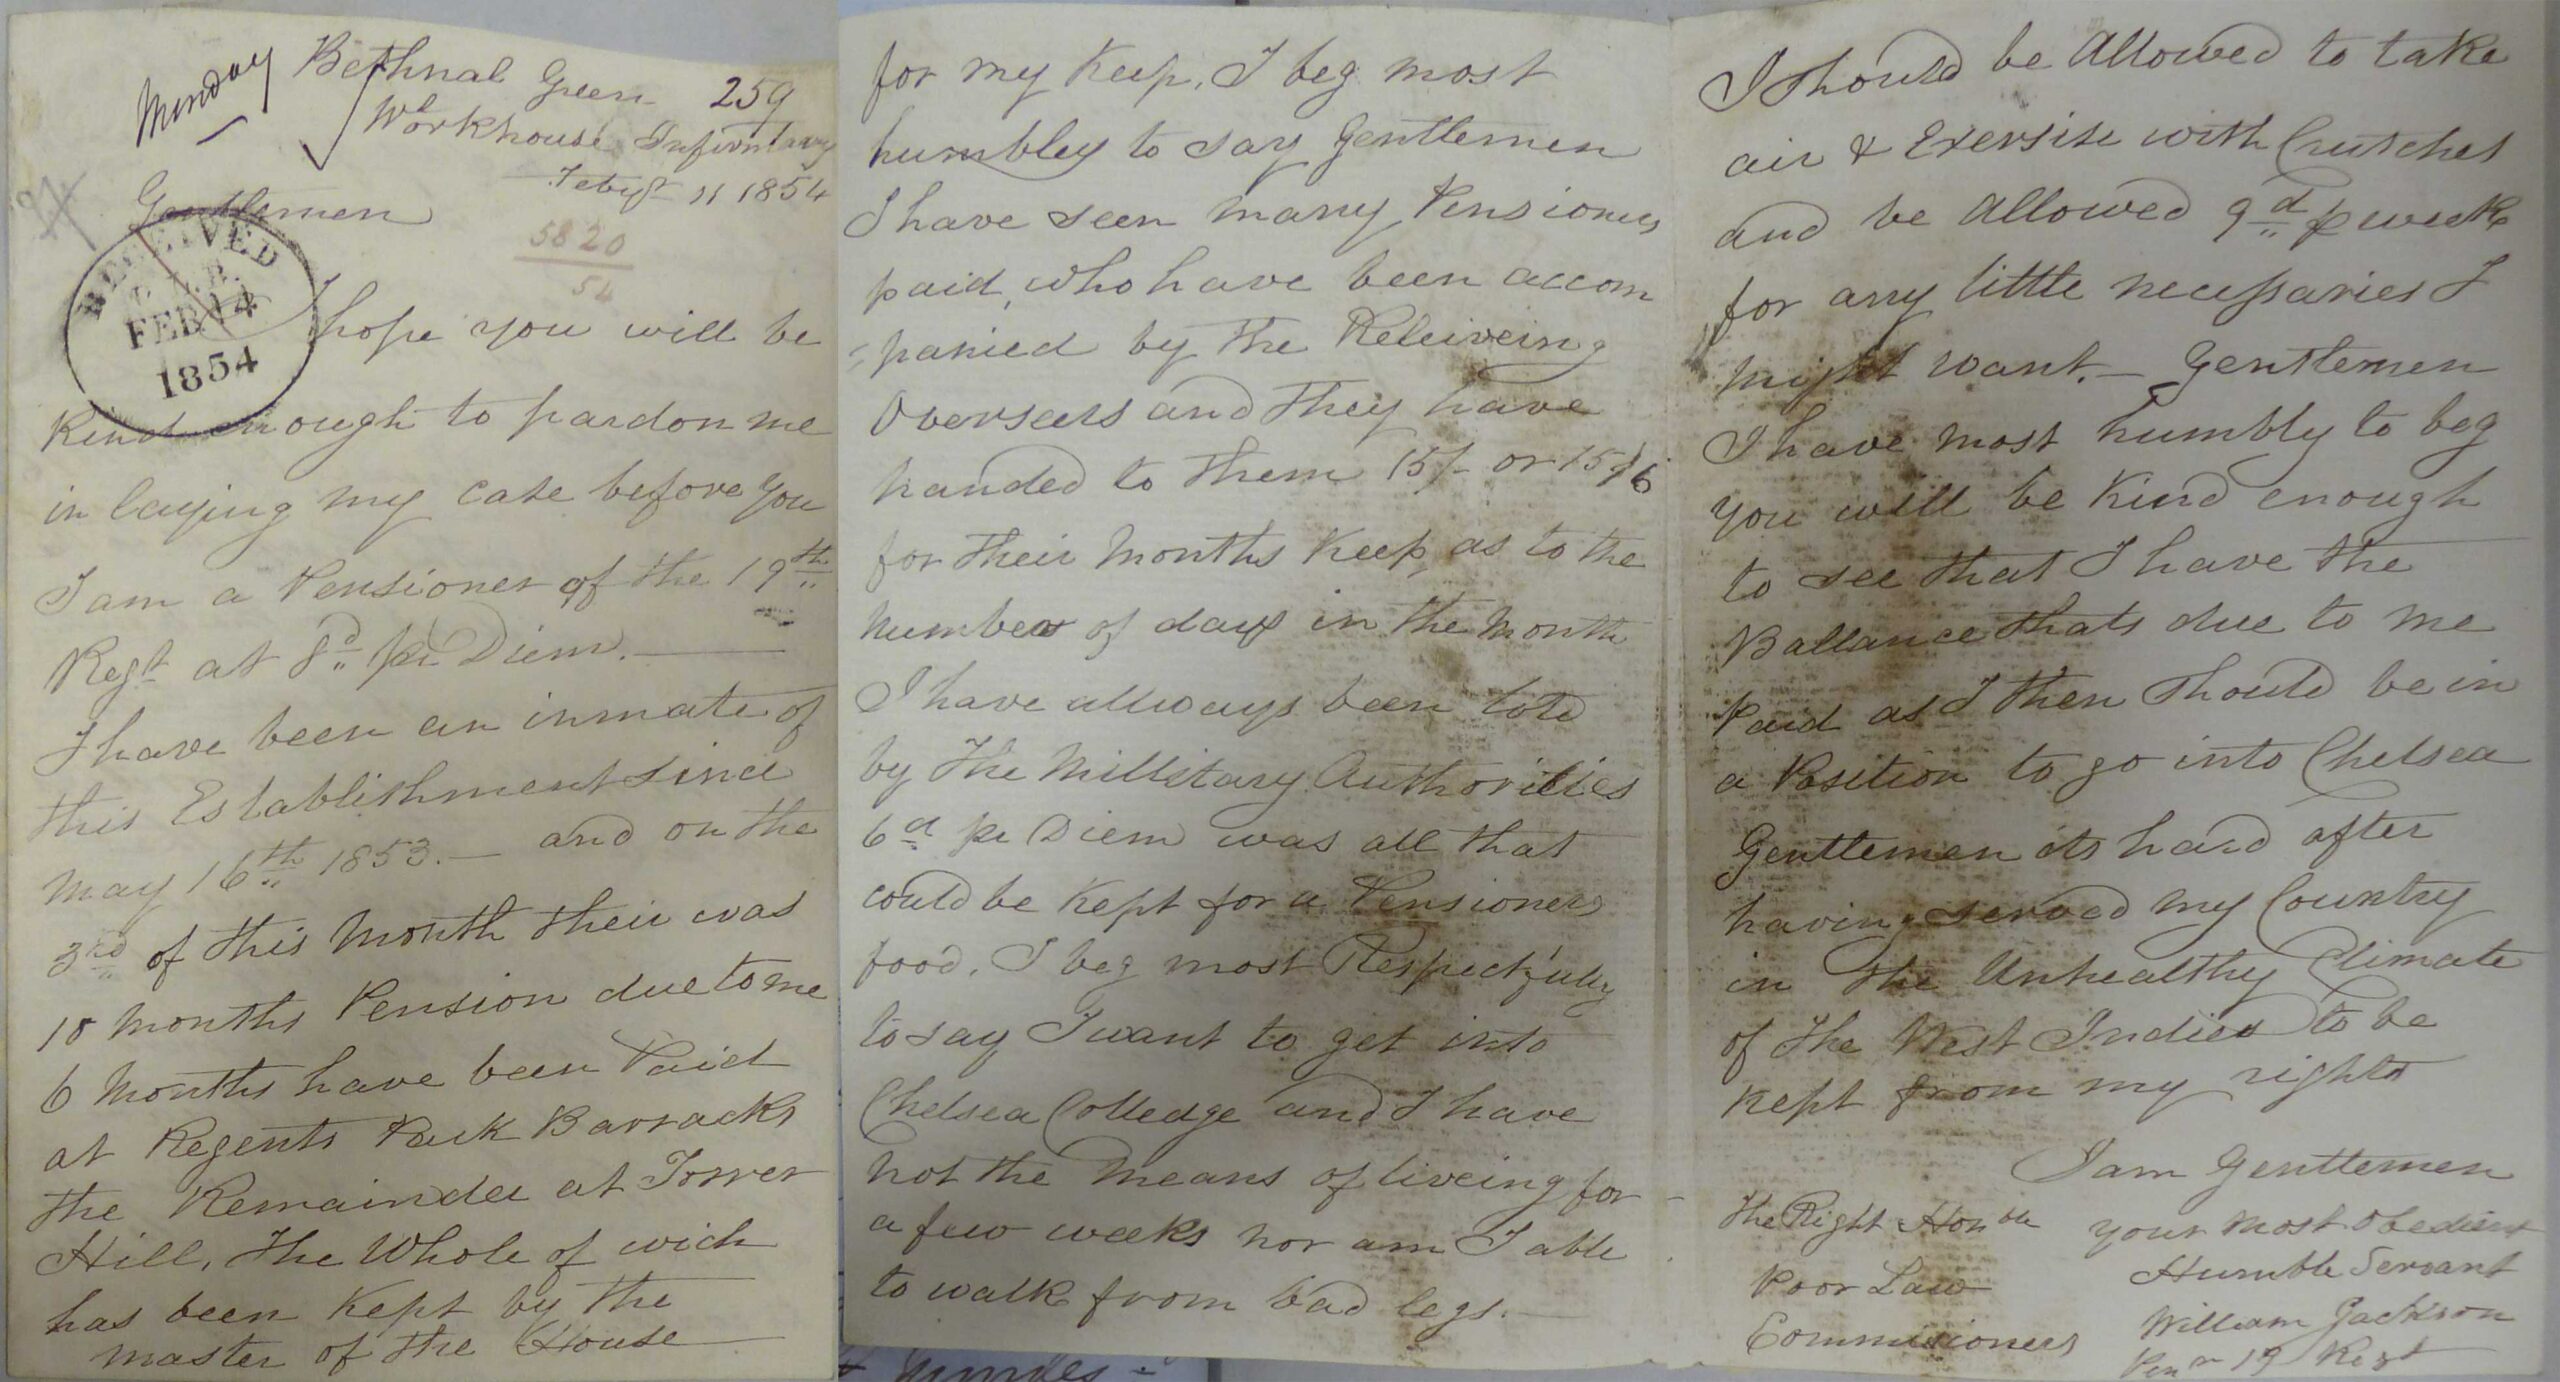 Monday
Bethnal Green 259
Workhouse Infirmary
Feby 11 1854
Gentlemen
5820
54
RECEIVED
FEB 14
1854
I hope you will be
Kind enough to pardon me
in laying my case before you
I am a Pensioner of the 19th
Regt at 8d pr Diem.
I have been an inmate of
this Establishment since
May 16th 1853. — and on the
3rd of this Month their was
10 Months Pension due to me
6 Months have been Paid
at Regents Park Barracks
the Remainder at Tower
Hill, the Whole of wich
has been Kept by the
master of the House
for my Keep, I beg most
humbley to say Gentlemen
I have seen many Pensioners
paid, who have been accom
=panied by the Releiveing
Overseers and they have
handed to them 15/- or 15/6
for their Months Keep, as to the
Number of days in the Month
I have allways been told
by the Millitary Authorities
6d pr Diem was all that
could be Kept for a Pensioners
food, I beg most Respectfully
to say I want to get into
Chelsea Colledge and I have
not the means of liveing for
a few weeks nor am I able
to walk from bad legs. —
I should be allowed to take
air & Exersise with Crutches
and be allowed 9d p week
for any little necessaries I
might want. — Gentlemen
I have most humbly to beg
you will be Kind enough
to see that I have the
Ballance thats due to me
Paid as I then should be in
a Position to go into Chelsea
Gentlemen its hard after
having served my Country
in the Unhealthy Climate
of the West Indies to be
kept from my rights
I am Gentlemen
your most obedient
Humble Servant
William Jackson
Penr 19 Regt
The Right Honble
Poor Law
Commisioners